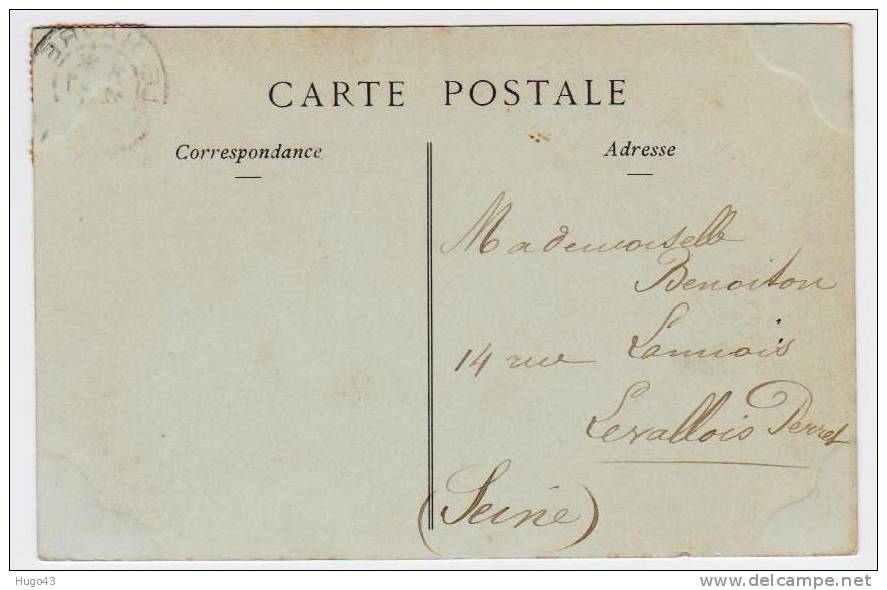 CARTE POSTALE
Correspondance
Adresse
Mademoiselle
Benoiton
14 rue Lannois
Levallois Perret
(Seine)
Hugo43
delcampe.net